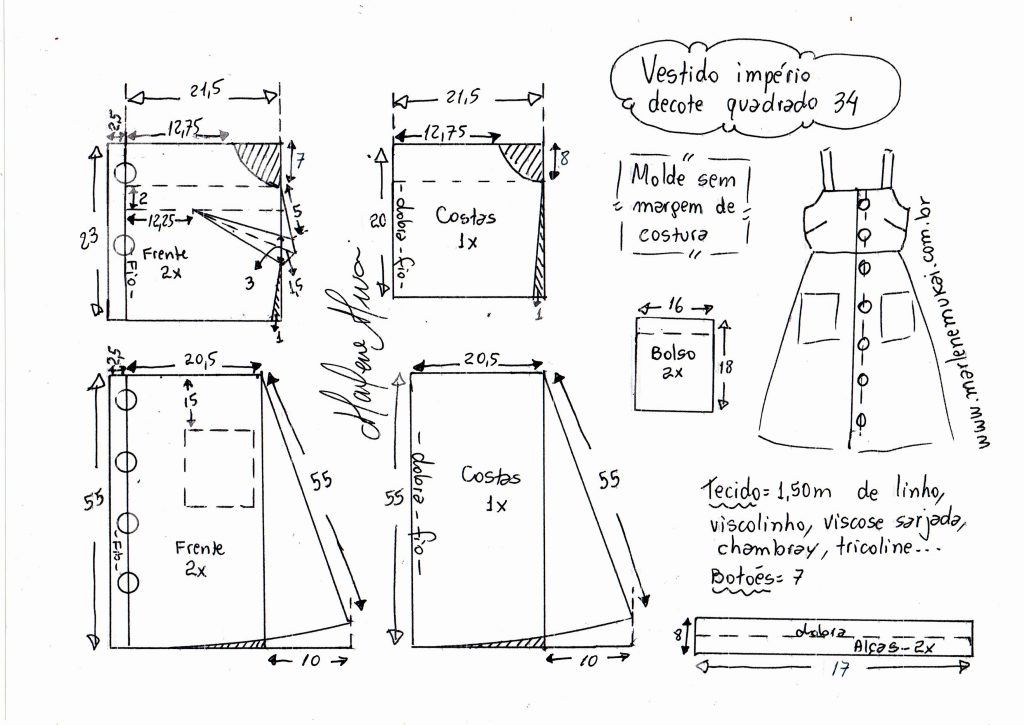 Vestido império
decote quadrado 34
21,5
2,5
12,75
7
2
12,25
5
23
Frente
2x
Fio
3
1,5
1
21,5
12,75
8
20
dobra - fio
Costas
1x
1
Molde sem
margem de
costura
www.marlenemukai.com.br
Marlene Mukai
16
Bolso
2x
18
2,5
20,5
5
55
55
Fio
Frente
2x
10
20,5
55
dobra - fio
Costas
1x
55
10
Tecido = 1,50m de linho,
viscolinho, viscose sarjada,
chambray, tricoline...
Botões = 7
8
dobra
Alças - 2x
17